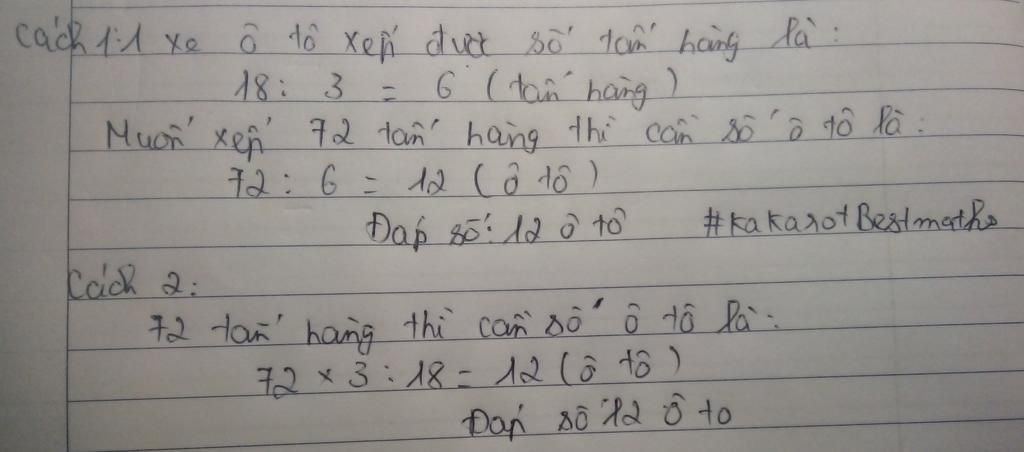 Cách 1:1 xe ô tô xếp được số tấn hàng là:
18: 3 = 6 (tấn hàng)
Muốn xếp 72 tấn hàng thì cần số ô tô là:
72: 6 = 12 (ô tô)
Đáp số: 12 ô tô #KakarotBestmaths
Cách 2:
72 tấn hàng thì cần số ô tô là:
72 × 3 : 18 = 12 (ô tô)
Đáp số 12 ô to